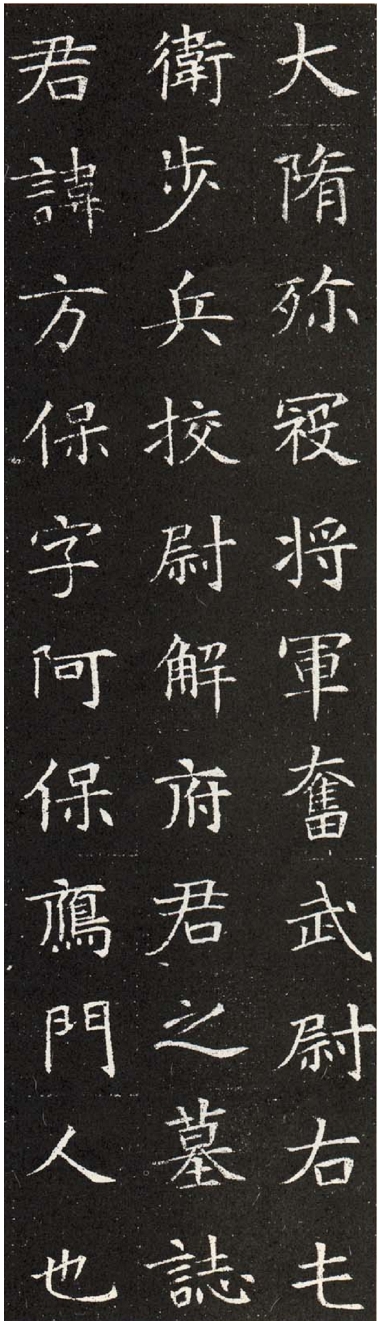 大隋殄冦将軍奮武尉右屯
衛步兵挍尉解府君之墓誌
君諱方保字阿保鴈門人也